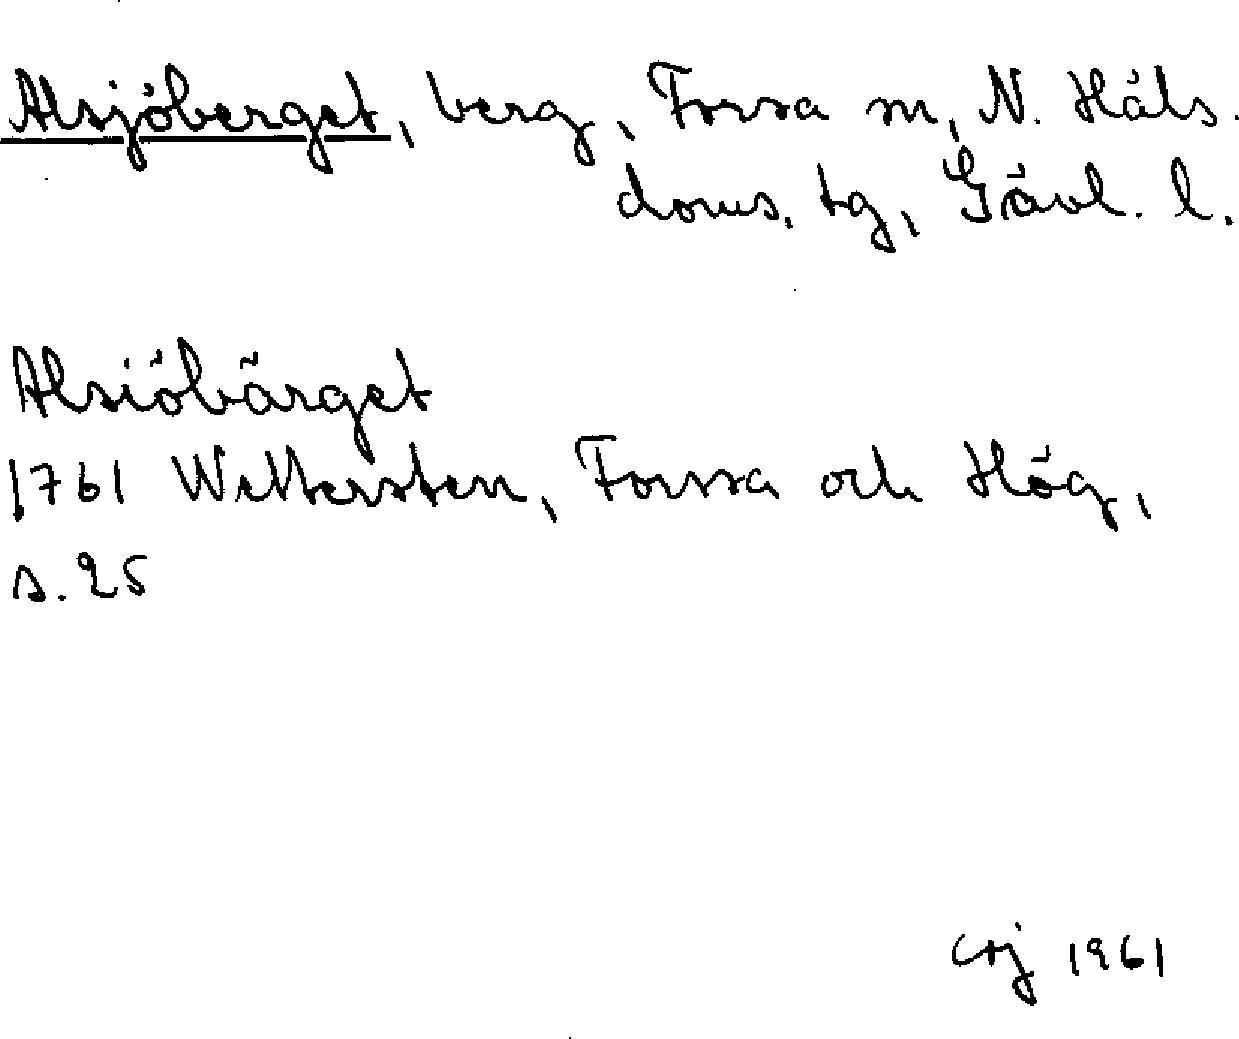 Alsjöberget, berg, Forsa sn, N. Häls.
doms. tg, Gävl. l.
Alsiöbärget
1761 Wettersten, Forssa och Hög,
s. 25
1961